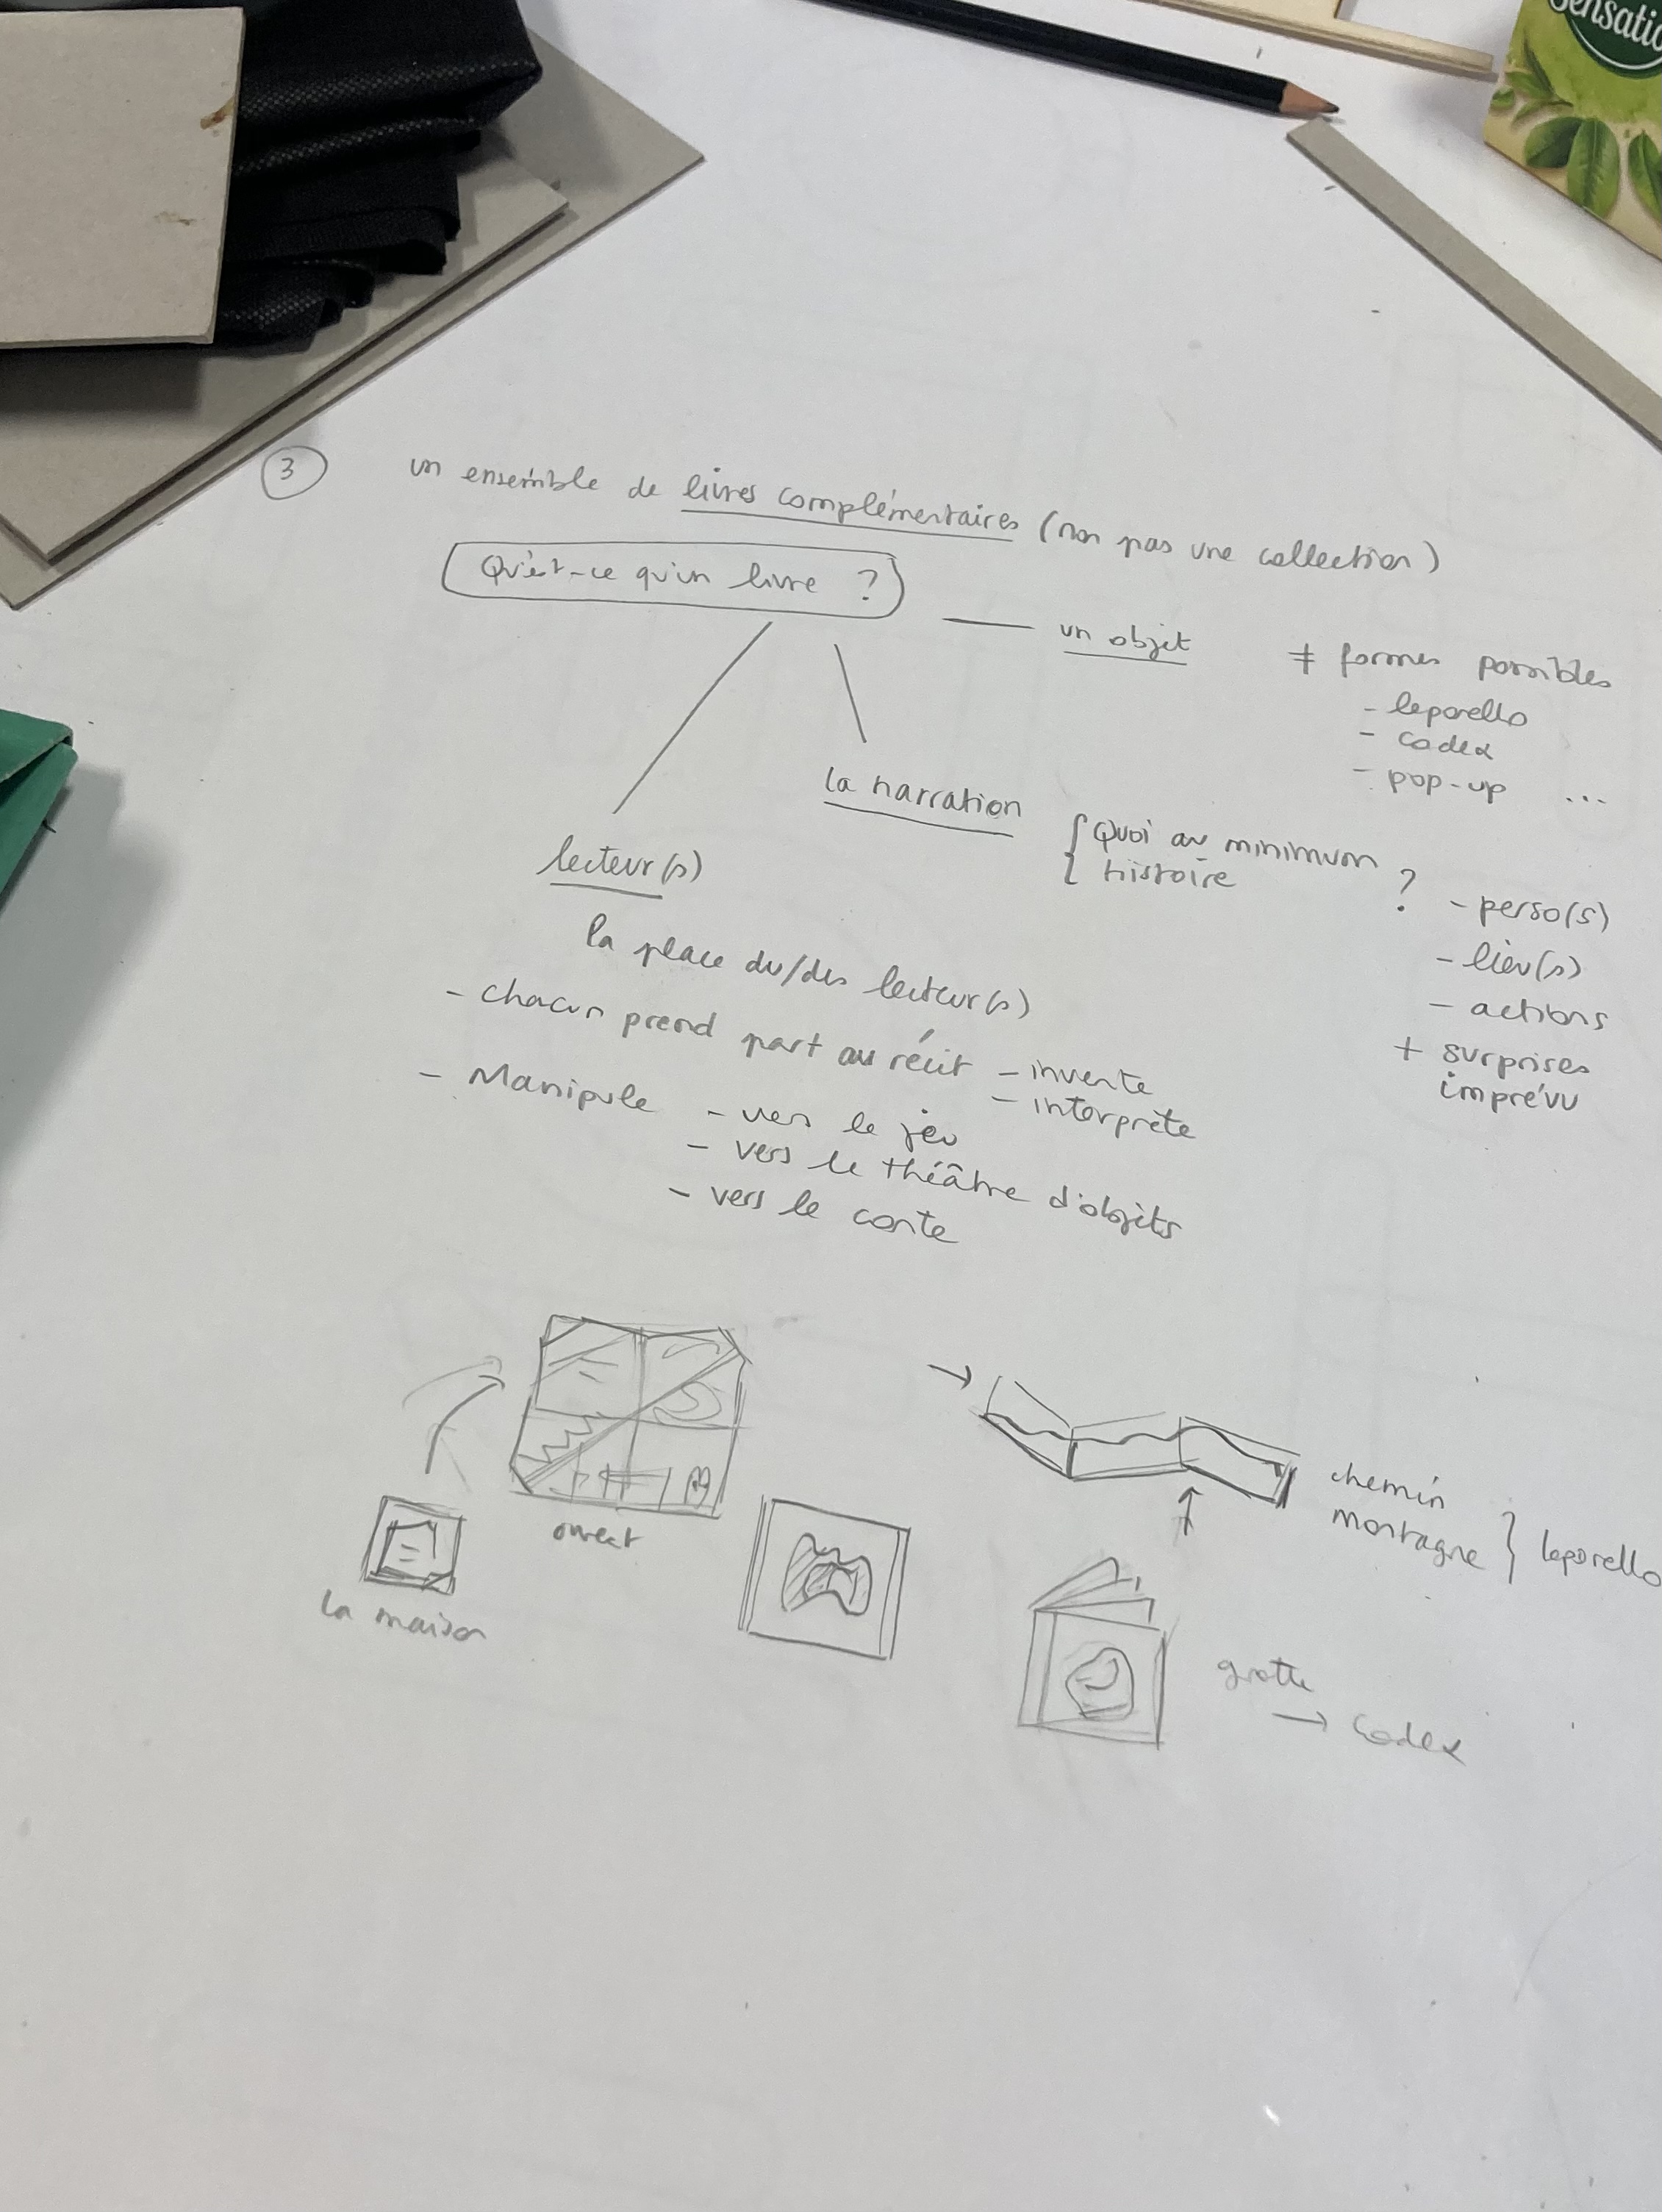 Sensatio
3
un ensemble de livres complémentaires (non pas une collection)
Qu'est-ce qu'un livre ?
un objet
≠ formes possibles
- leporello
- codex
- pop-up ...
la narration
{ Quoi au minimum
histoire ?
- perso(s)
- lieu(s)
- actions
+ surprises
imprévu
lecteur(s)
la place du/des lecteur(s)
- chacun prend part au récit - invente
- interprète
- Manipule - vers le jeu
- vers le théâtre d'objets
- vers le conte
ouvert
la maison
chemin
montagne } leporello
grotte
→ codex